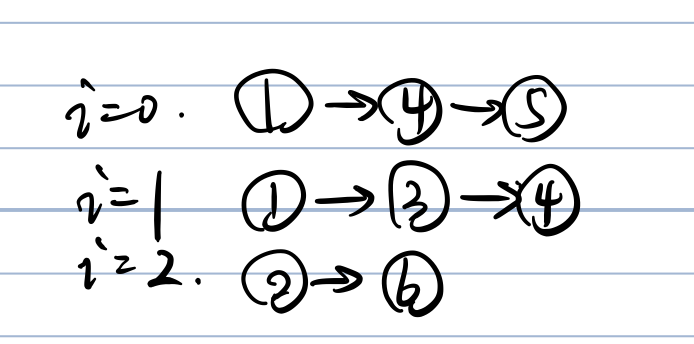 i=0. 1 → 4 → 5
i=1 1 → 3 → 4
i=2. 2 → 6